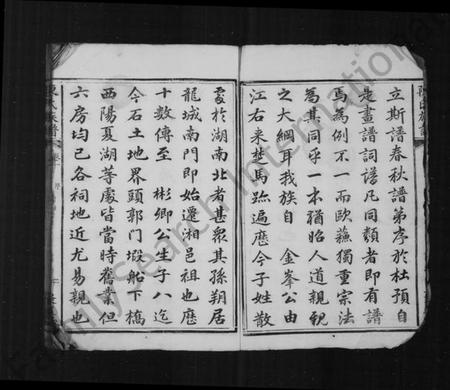 立斯譜春秋譜第序於杜預自
是畫譜詞譜凡同類者即有譜
焉為例不一而歐蘇獨重宗法
為其同乎一本猶昭人道親親
之大綱耳我族自 金峯公由
江右來楚馬跡遍歷今子姓散
處於湖南北者甚衆其孫朔居
龍城南門即始遷湘邑祖也歷
十數傳至 彬卿公生子八迄
今石土地界頭郭門塅船下橋
西陽夏湖等處皆當時舊業但
六房均已各祠地近尤易親也
FamilySearch International